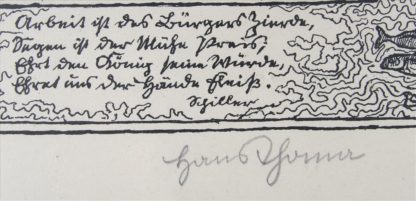 Arbeit ist des Bürgers Zierde,
Segen ist der Mühe Preis,
Ehrt den König seine Würde,
Ehret uns der Hände Fleiß.
Schiller
Hans Thoma